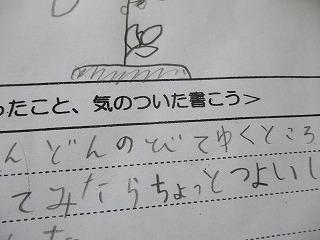 ったこと、気のついた書こう＞
んどんのびてゆくところ
てみたらちょっとつよいし